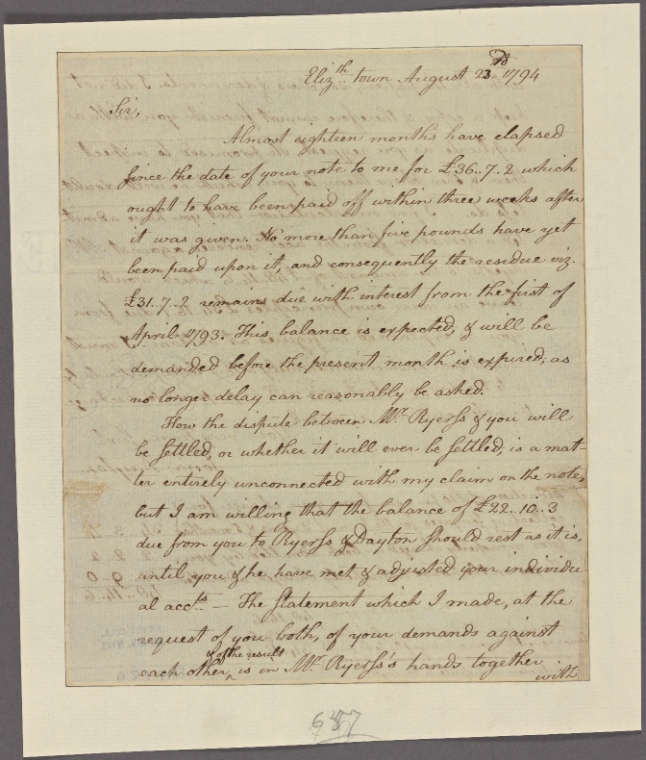 Eliz.th town August 23.rd 1794
Sir,
Almost eighteen months have elapsed
since the date of your note to me for £36..7..2 which
ought to have been paid off within three weeks after
it was given. No more than five pounds have yet
been paid upon it, and consequently the residue viz.
£31..7..2 remains due with interest from the first of
April 1793. This balance is expected, & will be
demanded before the present month is expired, as
no longer delay can reasonably be asked.
How the dispute between Mr. Ryerss & you will
be settled, or whether it will ever be settled, is a mat-
ter entirely unconnected with my claim on the note,
but I am willing that the balance of £22..10..3
due from you to Ryerss & Dayton should rest as it is,
until you & he have met & adjusted your individu
al accts. — The Statement which I made, at the
request of you both, of your demands against
& of the result
each other, is in Mr. Ryerss's hands together
with
687